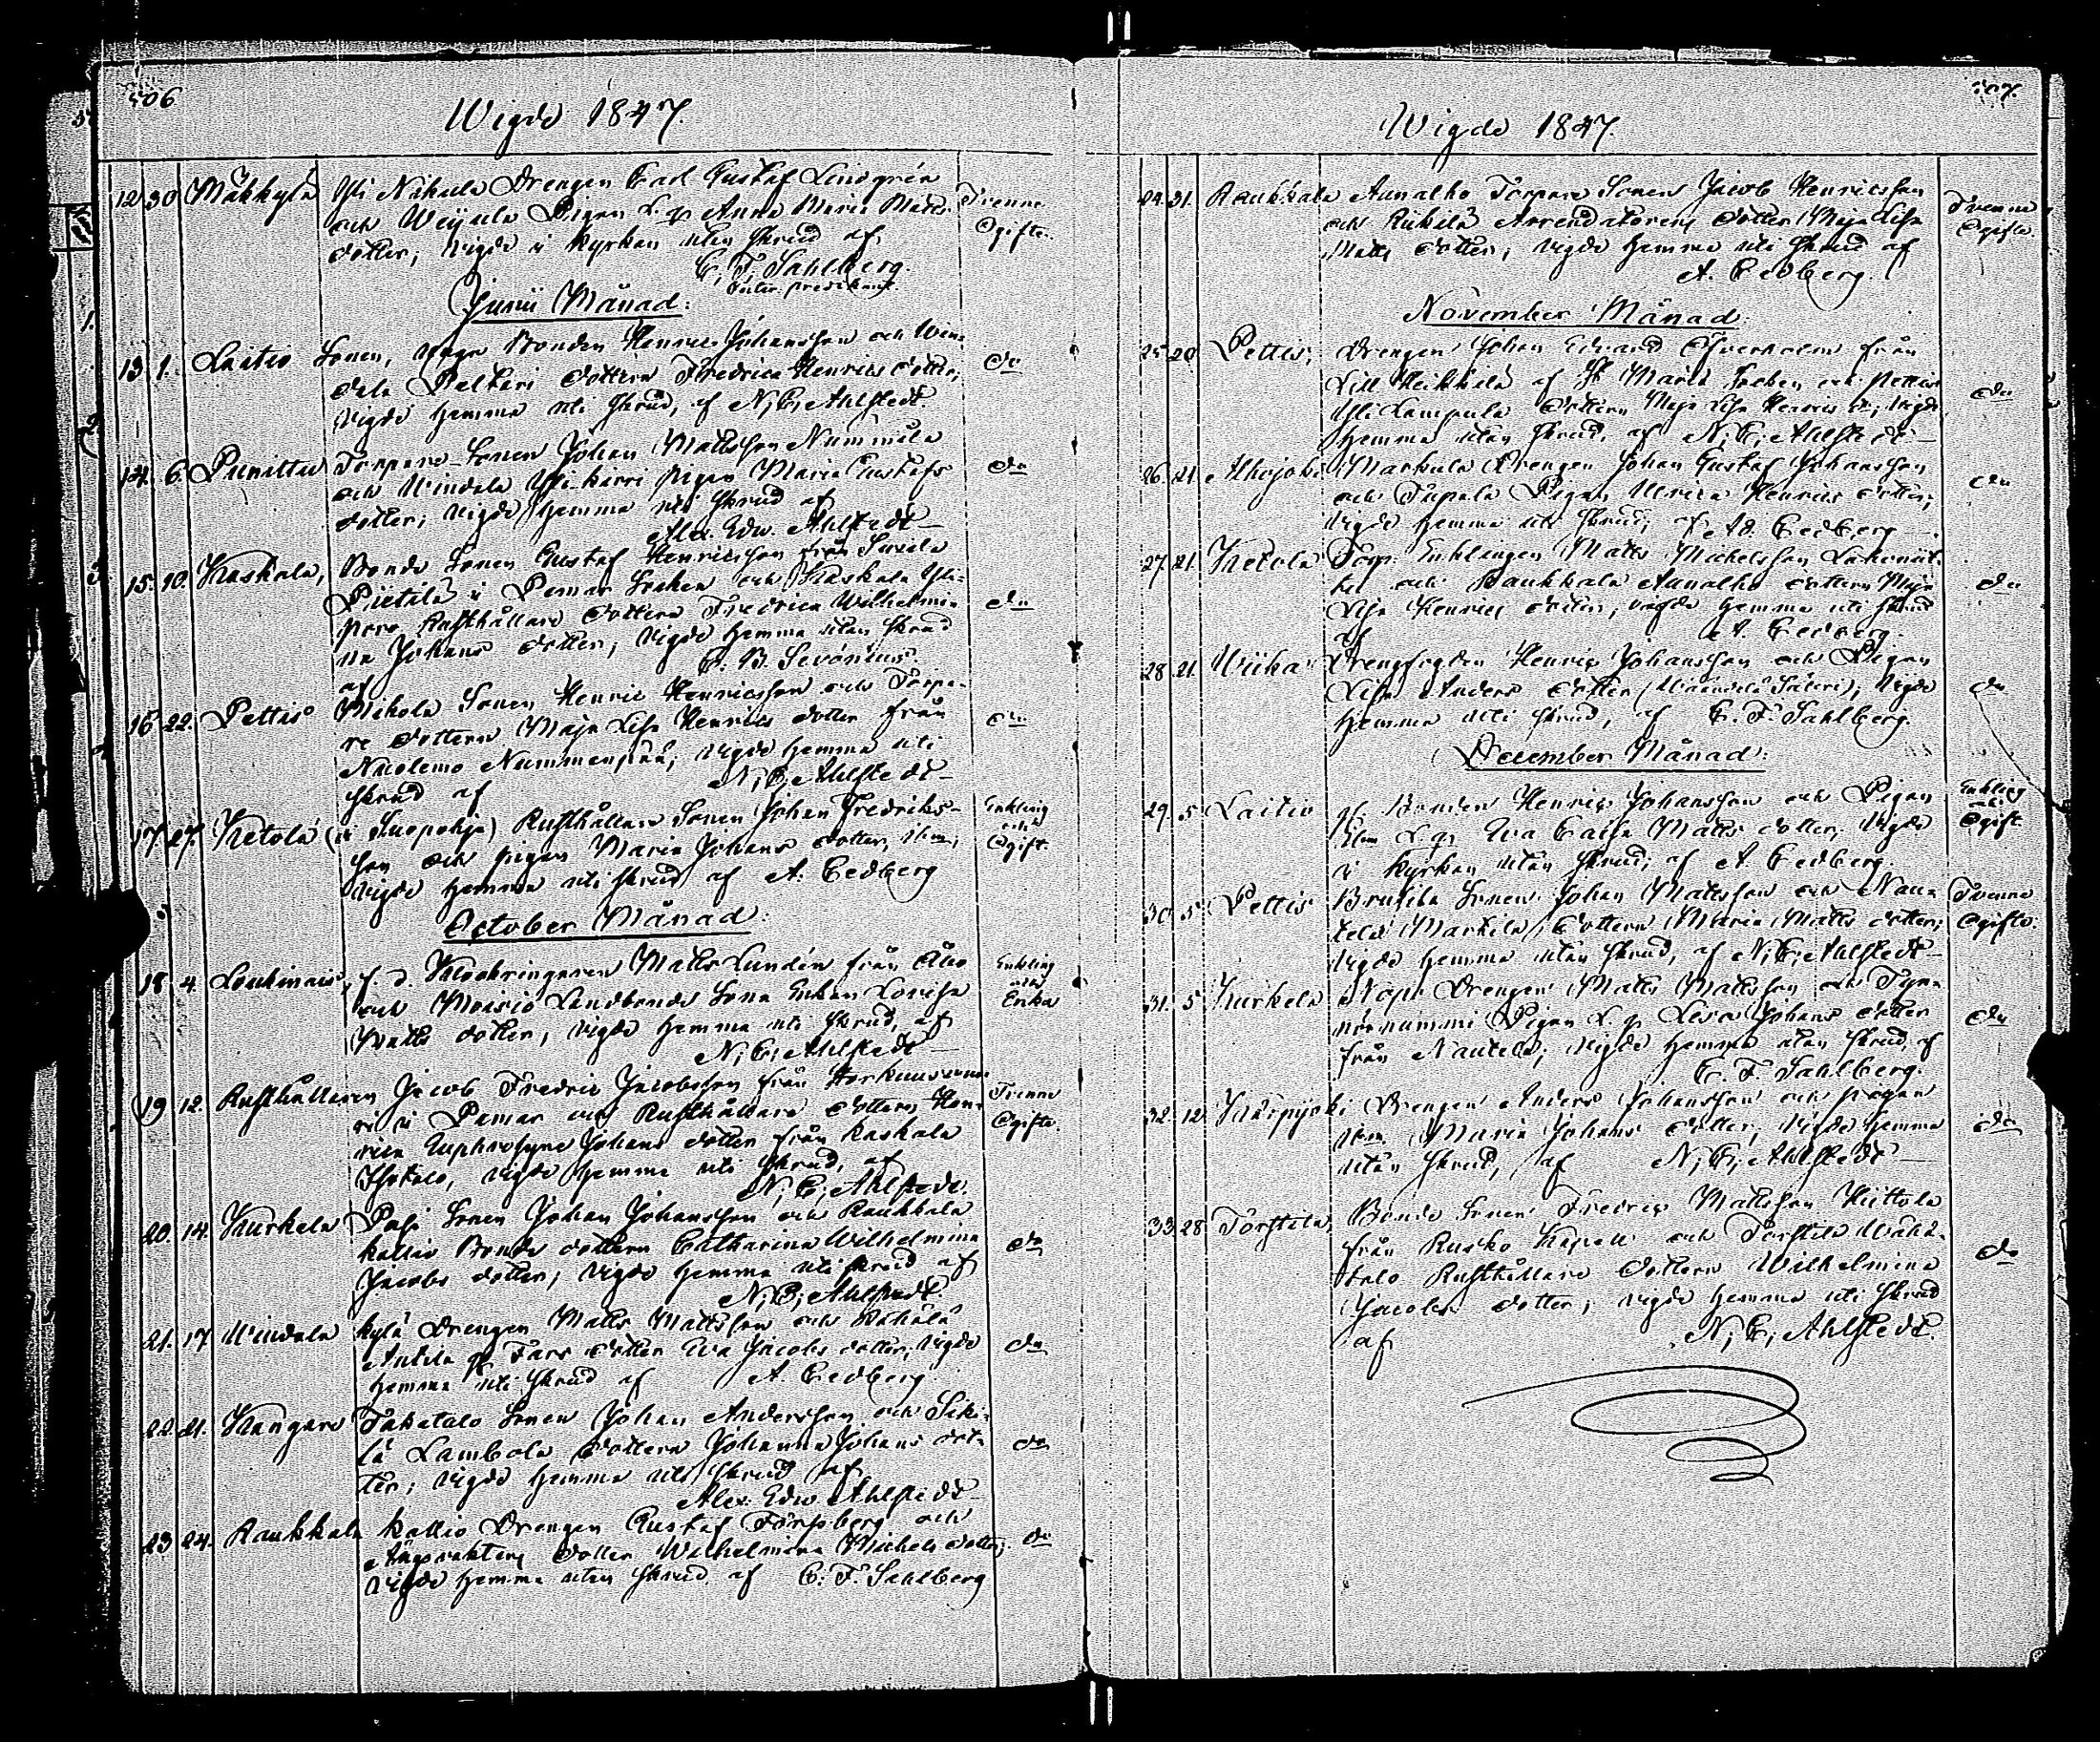 506
Wigde 1847.
12. 30 Mäkkylä Yli Nikula Drengen Carl Gustaf Lindgrén Tvenne
och Weijula Pigan L. g. Anna Maria Matts Ogifte.
dotter; vigde i Kyrkan utan skrud af
C. F. Sahlberg.
Junii Månad.
13. 1. Laitio Sonen, unga Bonden Henric Johansson och Win- do
dela Peltari dottern Fredrica Henrics dotter;
vigde hemma uti skrud, af N; E; Ahlstedt.
14. 6. Punittu Torpare-Sonen Johan Mattsson Nummila do
och Windala Yli-kärri pigan Maria Gustafs
dotter; vigde hemma uti skrud af
Alex. Edw. Ahlstedt
15. 10. Kaskala, Bonde Sonen Gustaf Henricsson från
Pietilä i Pemar Socken och Kaskala Yli- do
pere Rusthållare dottern Fredrica Wilhelmi-
na Johans dotter; vigde hemma utan skrud
af
16. 22. Pettis Mikola Sonen Henric Henricsson och Torpa- do
re dottern Maja Lisa Henrics dotter från
Nuolemo Nummenpää; vigde hemma uti
skrud af N; E; Ahlstedt
17. 27. Ketola (i Suopohja) Rusthållare Sonen Johan Fredriks- Enkling och
son och pigan Maria Johans dotter, Ogift
vigde hemma uti skrud af A. Cedberg
October Månad.
18. 4. Loukinais, f. d. Klockringaren Matts Lundén från Åbo Enkling och
och Moisio Landbonde Sona Enkan Lovisa Enka
Matts dotter, vigde hemma uti skrud, af
N; E; Ahlstedt
19. 12. Rusthållaren Jacob Fredric Jacobsson från Tvenne
i Pemar och Rusthållare dottern Hen- Ogifte.
rica Euphrosyne Johans dotter från Kaskala
Isotalo, vigde hemma uti skrud, af
N; E; Ahlstedt.
20. 14. Kurkela Pasi Sonen Johan Johansson och Raukkala
Kallio Bonde dottern Catharina Wilhelmina do
Jacobs dotter; vigde hemma uti skrud af
N; E; Ahlstedt.
21. 17 Windala kylä Drengen Matts Mattsson och
Antila Fars dotter Eva Jacobs dotter; vigde do
hemma uti skrud af A. Cedberg.
22. 21. Kangare Takatalo Sonen Johan Andersson och Siki-
lä Lambola dottern Johanna Johans dot- do
ter; vigde hemma uti skrud af
Alex. Edw. Ahlstedt
23 24. Raukkala Kallio Drengen Gustaf Törnsberg och
dotter Wilhelmina Michels dotter; do
vigde hemma utan skrud af C. F. Sahlberg
507.
Wigde 1847.
24. 31. Raukkala Aunalho Torpare Sonen Jacob Henricsson Tvenne
och Rikilä Arrendatorens dotter Maja Lisa Ogifte.
Matts dotter; vigde hemma uti skrud af
A. Cedberg.
November Månad.
25. 20 Pettis, Drengen Johan Edvard Öfverholm från
Lill Heikkilä af St Marie Socken och Pettis do
Yli Lampula dottern Maja Lisa Henrics dr, vigde
hemma utan skrud, af N; E; Ahlstedt
26. 21 Alhojoki Markula Drengen Johan Gustaf Johansson
och Tupala Pigan Ulrica Henrics dotter; do
vigde hemma uti skrud; af A. Cedberg
27. 21. Ketola Torp. Enklingen Matts Michelsson
och Raukkala Aunalho dottern Maja do
Lisa Henrics dotter; vigde hemma uti skrud
af A. Cedberg.
28. 21. Wiika Drengfogden Henric Johansson och Pigan
Lisa Anders dotter (Wäändelä Säteri); vigde do
hemma uti skrud, af C. F. Sahlberg.
December Månad.
29. 5 Laitio gl. Bonden Henric Johansson och Pigan Enkling och
L. g. Eva Caisa Matts dotter; vigde Ogift.
i Kyrkan utan skrud; af A. Cedberg.
30. 5 Pettis Brusila Sonen Johan Mattsson och Nau- Tvenne
tela Markila, dottern Maria Matts dotter; Ogifte.
vigde hemma utan skrud, af N; E; Ahlstedt
31. 5 Kurkela Drengen Matts Mattsson och
nummi Pigan L. g. Lisa Johans dotter do
från Nautela; vigde hemma utan skrud, af
C. F. Sahlberg.
32. 12. Kärpijoki Drengen Anders Johansson och pigan
Maria Johans dotter; vigde hemma do
utan skrud, af N; E; Ahlstedt
33. 28 Torstila, Bonde Sonen Fredric Mattsson Hiittola
från Rusko Kapell och Torstila Wähä-
talo Rusthållare dottern Wilhelmina do
Jacobs dotter; vigde hemma uti skrud
af N; E; Ahlstedt.